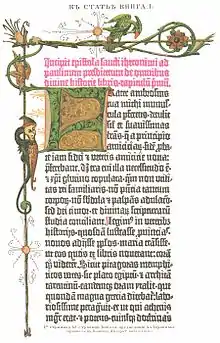 КЪ СТАТЬѢ КНИГА I.
Incipit epistola sancti iheronimi ad
paulinum presbiterum de omnibus
divine historie libris capitulum primum
Frater ambrosius
tua michi munus
cula perferens detulit
sil et suavissimas
lras q a principio
amiciciar fide pba
te iam fidei z veteris amicicie nova
pferebant. Vera eni illa necessitudo e
z xpi glutino copulata qm non utili
tas rei familiaris no pntia tantum
corpor no sbdola z palpas adulaco
sed dei timor et divinar scripturarum
studia conciliant. Legim in veterib
historiis quosda lustrasse provincias
novos adiisse plos maria trasisse
ut eos quos ex libris noverant cora
q videret. Sicut pitagoras memphi
ticos vates sic plato egiptu z archita
tarentinu eamq oram ytalie que
quonda magna grecia dicebat labo
riosissime peragvit et ut qui athenis
mgr erat z potens cuiusq doctrinas